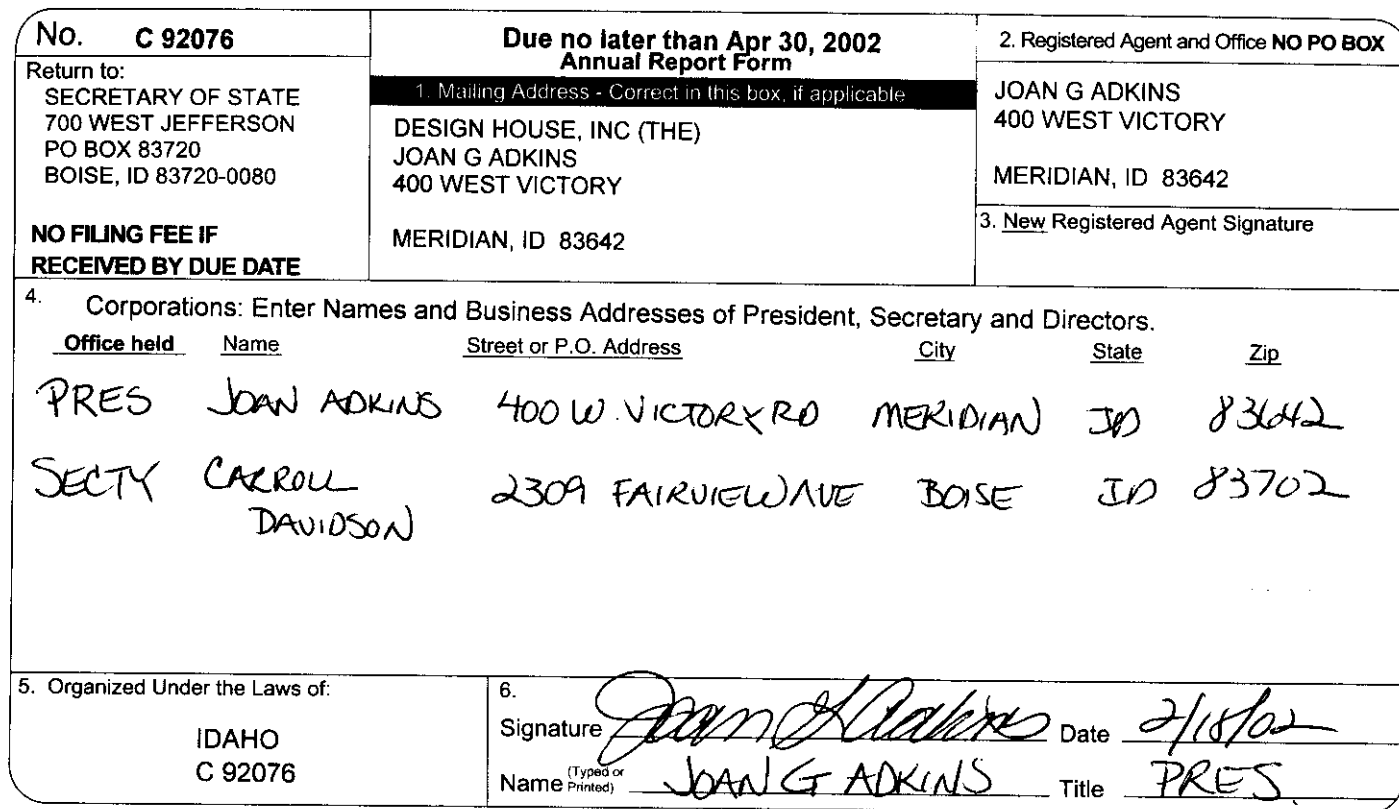 No. C 92076
Return to:
SECRETARY OF STATE
700 WEST JEFFERSON
PO BOX 83720
BOISE, ID 83720-0080
NO FILING FEE IF
RECEIVED BY DUE DATE
Due no later than Apr 30, 2002
Annual Report Form
1. Mailing Address - Correct in this box, if applicable
DESIGN HOUSE, INC (THE)
JOAN G ADKINS
400 WEST VICTORY
MERIDIAN, ID 83642
2. Registered Agent and Office NO PO BOX
JOAN G ADKINS
400 WEST VICTORY
MERIDIAN, ID 83642
3. New Registered Agent Signature
4. Corporations: Enter Names and Business Addresses of President, Secretary and Directors.
Office held Name Street or P.O. Address City State Zip
PRES JOAN ADKINS 400 W. VICTORY RD MERIDIAN ID 83642
SECTY CARROLL 2309 FAIRVIEW AVE BOISE ID 83702
DAVIDSON
5. Organized Under the Laws of:
IDAHO
C 92076
6.
Signature Joan G Adkins Date 2/18/02
Name (Typed or Printed) JOAN G ADKINS Title PRES.